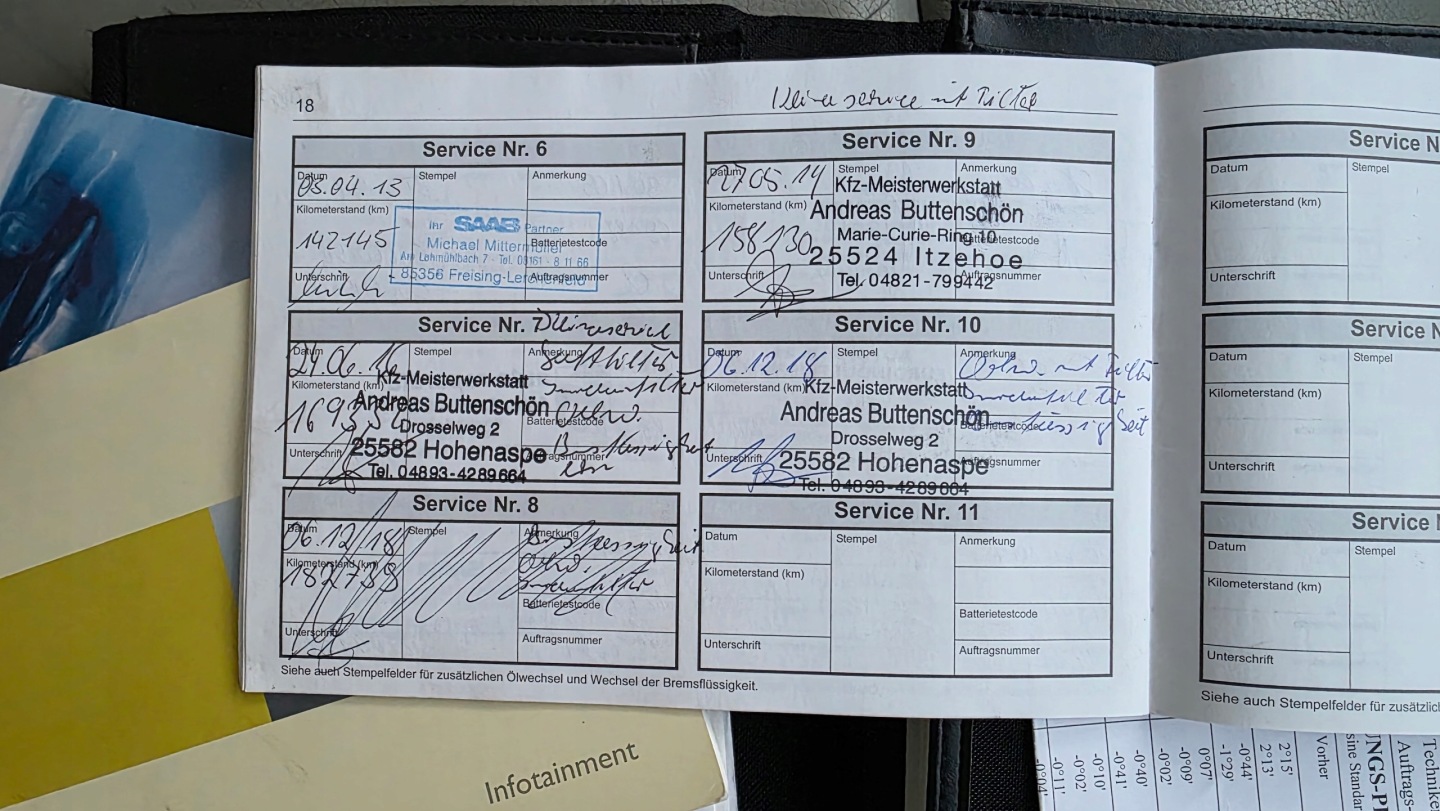 18
Service Nr. 6
Datum
05.04.13
Stempel
Anmerkung
Kilometerstand (km)
142145
Ihr SAAB Partner
Michael Mittermüller
Am Lohmühlbach 7 - Tel. 08161 - 8 11 66
85356 Freising-Lerchenfeld
Batterietestcode
Unterschrift
Auftragsnummer
Service Nr. 7
Datum
24.06.16
Stempel
Anmerkung
Kilometerstand (km)
Kfz-Meisterwerkstatt
Andreas Buttenschön
Drosselweg 2
25582 Hohenaspe
Tel. 04893-4289664
Batterietestcode
Unterschrift
Auftragsnummer
Service Nr. 8
Datum
06.12/18
Stempel
Anmerkung
Bremsflüssigkeit
Kilometerstand (km)
Batterietestcode
Unterschrift
Auftragsnummer
service mit Filter
Service Nr. 9
Datum
27.05.14
Stempel
Anmerkung
Kilometerstand (km)
158130
Kfz-Meisterwerkstatt
Andreas Buttenschön
Marie-Curie-Ring 10
25524 Itzehoe
Tel. 04821-799442
Batterietestcode
Unterschrift
Auftragsnummer
Service Nr. 10
Datum
06.12.18
Stempel
Anmerkung
mit Filter
Kilometerstand (km)
Kfz-Meisterwerkstatt
Andreas Buttenschön
Drosselweg 2
25582 Hohenaspe
Tel. 04893-4289664
Batterietestcode
Unterschrift
Auftragsnummer
Service Nr. 11
Datum
Stempel
Anmerkung
Kilometerstand (km)
Batterietestcode
Unterschrift
Auftragsnummer
Siehe auch Stempelfelder für zusätzlichen Ölwechsel und Wechsel der Bremsflüssigkeit.
Service N
Datum
Stempel
Kilometerstand (km)
Unterschrift
Service N
Datum
Stempel
Kilometerstand (km)
Unterschrift
Service N
Datum
Stempel
Kilometerstand (km)
Unterschrift
Siehe auch Stempelfelder für zusätzlic
Infotainment
Technike
Auftrags-
Vorher
2°15'
2°13'
-0°44'
-1°29'
0°07'
-0°09'
-0°02'
-0°40'
-0°41'
-0°10'
-0°02'
-0°11'
-0°04'